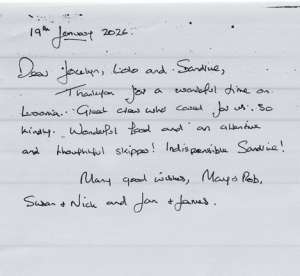 19th January 2026.
Dear Jocelyn, Loto and Sandrine,
Thankyou for a wonderful time on
Great crew who cared for us so
kindly. Wonderful food and an attentive
and thoughtful skipper! Indispensible Sandrine!
Many good wishes, Mary & Rob,
Susan & Nick and Jan & James.